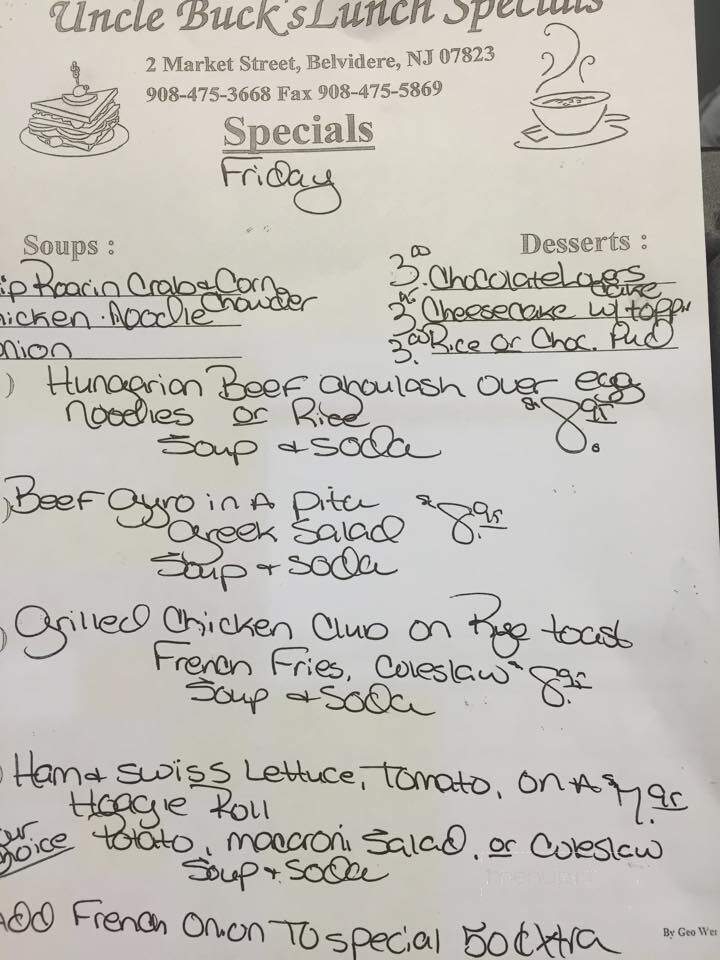 Uncle Buck's Lunch Specials
2 Market Street, Belvidere, NJ 07823
908-475-3668 Fax 908-475-5869
Specials
Friday
Soups :
ip Roarin Crab & Corn
Chowder
hicken Noodle
nion
Desserts :
3.00 Chocolate Lovers
Cake
3. Cheesecake w/ topp
3.00 Rice or Choc. Pud
) Hungarian Beef ghoulash over egg
Noodles or Rice $8.95
Soup & soda
) Beef Gyro in A Pita $8.95
Greek Salad
Soup + soda
) Grilled Chicken Club on Rye toast
French Fries, Coleslaw $8.95
Soup & soda
) Ham & swiss Lettuce, Tomato, on A $7.95
Hoagie Roll
ur
hoice Potato, macaroni Salad, or Coleslaw
Soup + Soda
Add French Onion To special 50¢ Extra
By Geo Wer